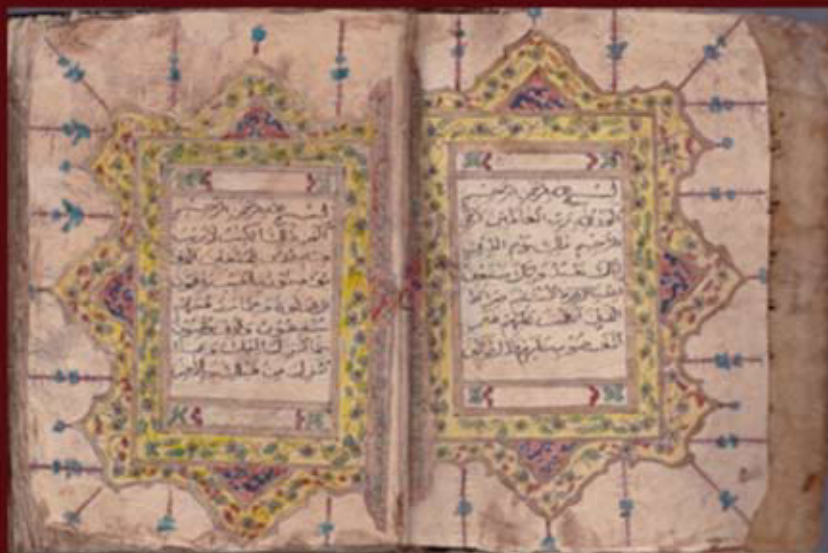 بسم الله الرحمن الرحيم
الحمد لله رب العالمين
الرحيم ملك يوم الدين
اياك نعبد واياك نستعين
اهدنا الصراط المستقيم صراط
الذين انعمت عليهم غير
المغضوب عليهم ولا الضالين
بسم الله الرحمن الرحيم
الم ذلك الكتب لا ريب
فيه هدى للمتقين الذين
يؤمنون بالغيب ويقيمون
الصلوة ومما رزقنهم
ينفقون والذين يؤمنون
بما انزل اليك وما
انزل من قبلك